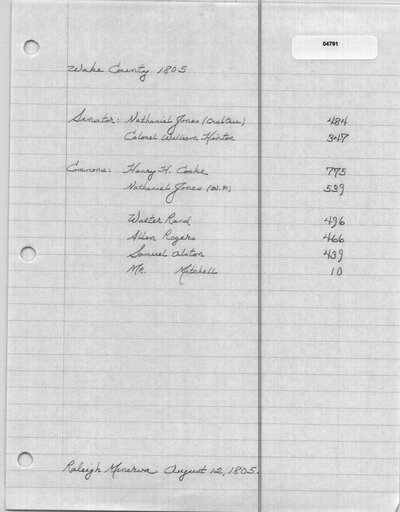 04791
Wake County 1805
Senator: Nathaniel Jones (Crabtree) 484
Colonel William Hinton 347
Commons: Henry H. Cooke 775
Nathaniel Jones (W.P.) 539
Walter Rand 496
Allen Rogers 466
Samuel Alston 439
Mr. Mitchell 10
Raleigh Minerva. August 12, 1805.